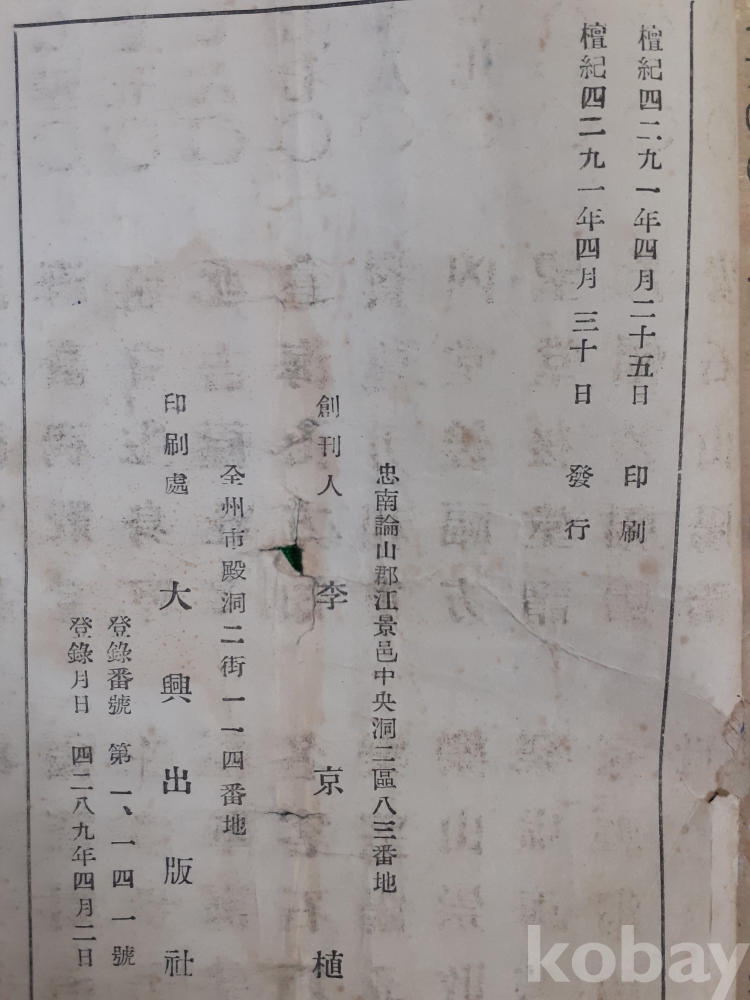 檀紀四二九一年四月二十五日 印刷
檀紀四二九一年四月三十日 發行
忠南論山郡江景邑中央洞二區八三番地
創刊人 李京植
全州市殿洞二街一一四番地
印刷處 大興出版社
登錄番號 第一、一四一號
登錄月日 四二八九年四月二日
kobay